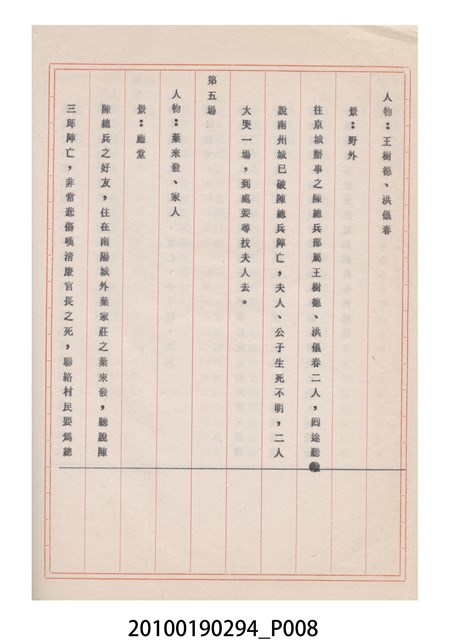 人物：王樹德、洪儀春
景：野外
往京城辦事之陳總兵部屬王樹德、洪儀春二人，回途聽
說南州城已破陳總兵陣亡，夫人、公子生死不明，二人
大哭一場，到處要尋找夫人去。
第五場：
人物：葉來發、家人
景：廳堂
陳總兵之好友，住在南陽城外葉家莊之葉來發，聽說陳
三郎陣亡，非常悲傷嘆清廉官長之死，聯絡村民要為總
20100190294_P008